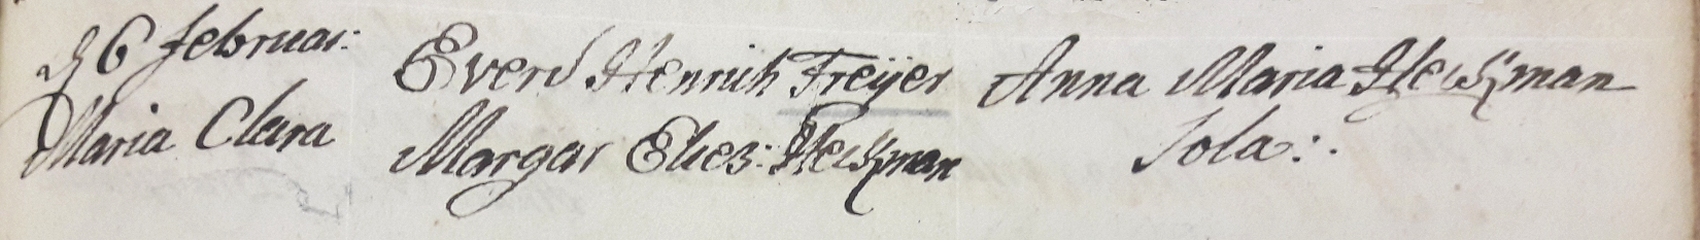 d 6 februar:
Maria Clara
Everd Henrich Freÿer
Margar Elies: Heckman
Anna Maria Heckman
Sola:.